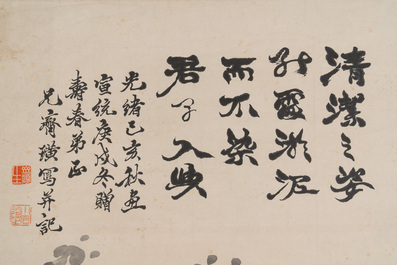 清潔之姿
淤泥
而不染
君子入
光緒己亥秋畫
宣統庚戌冬贈
壽春弟正
兄齊璜寫并記